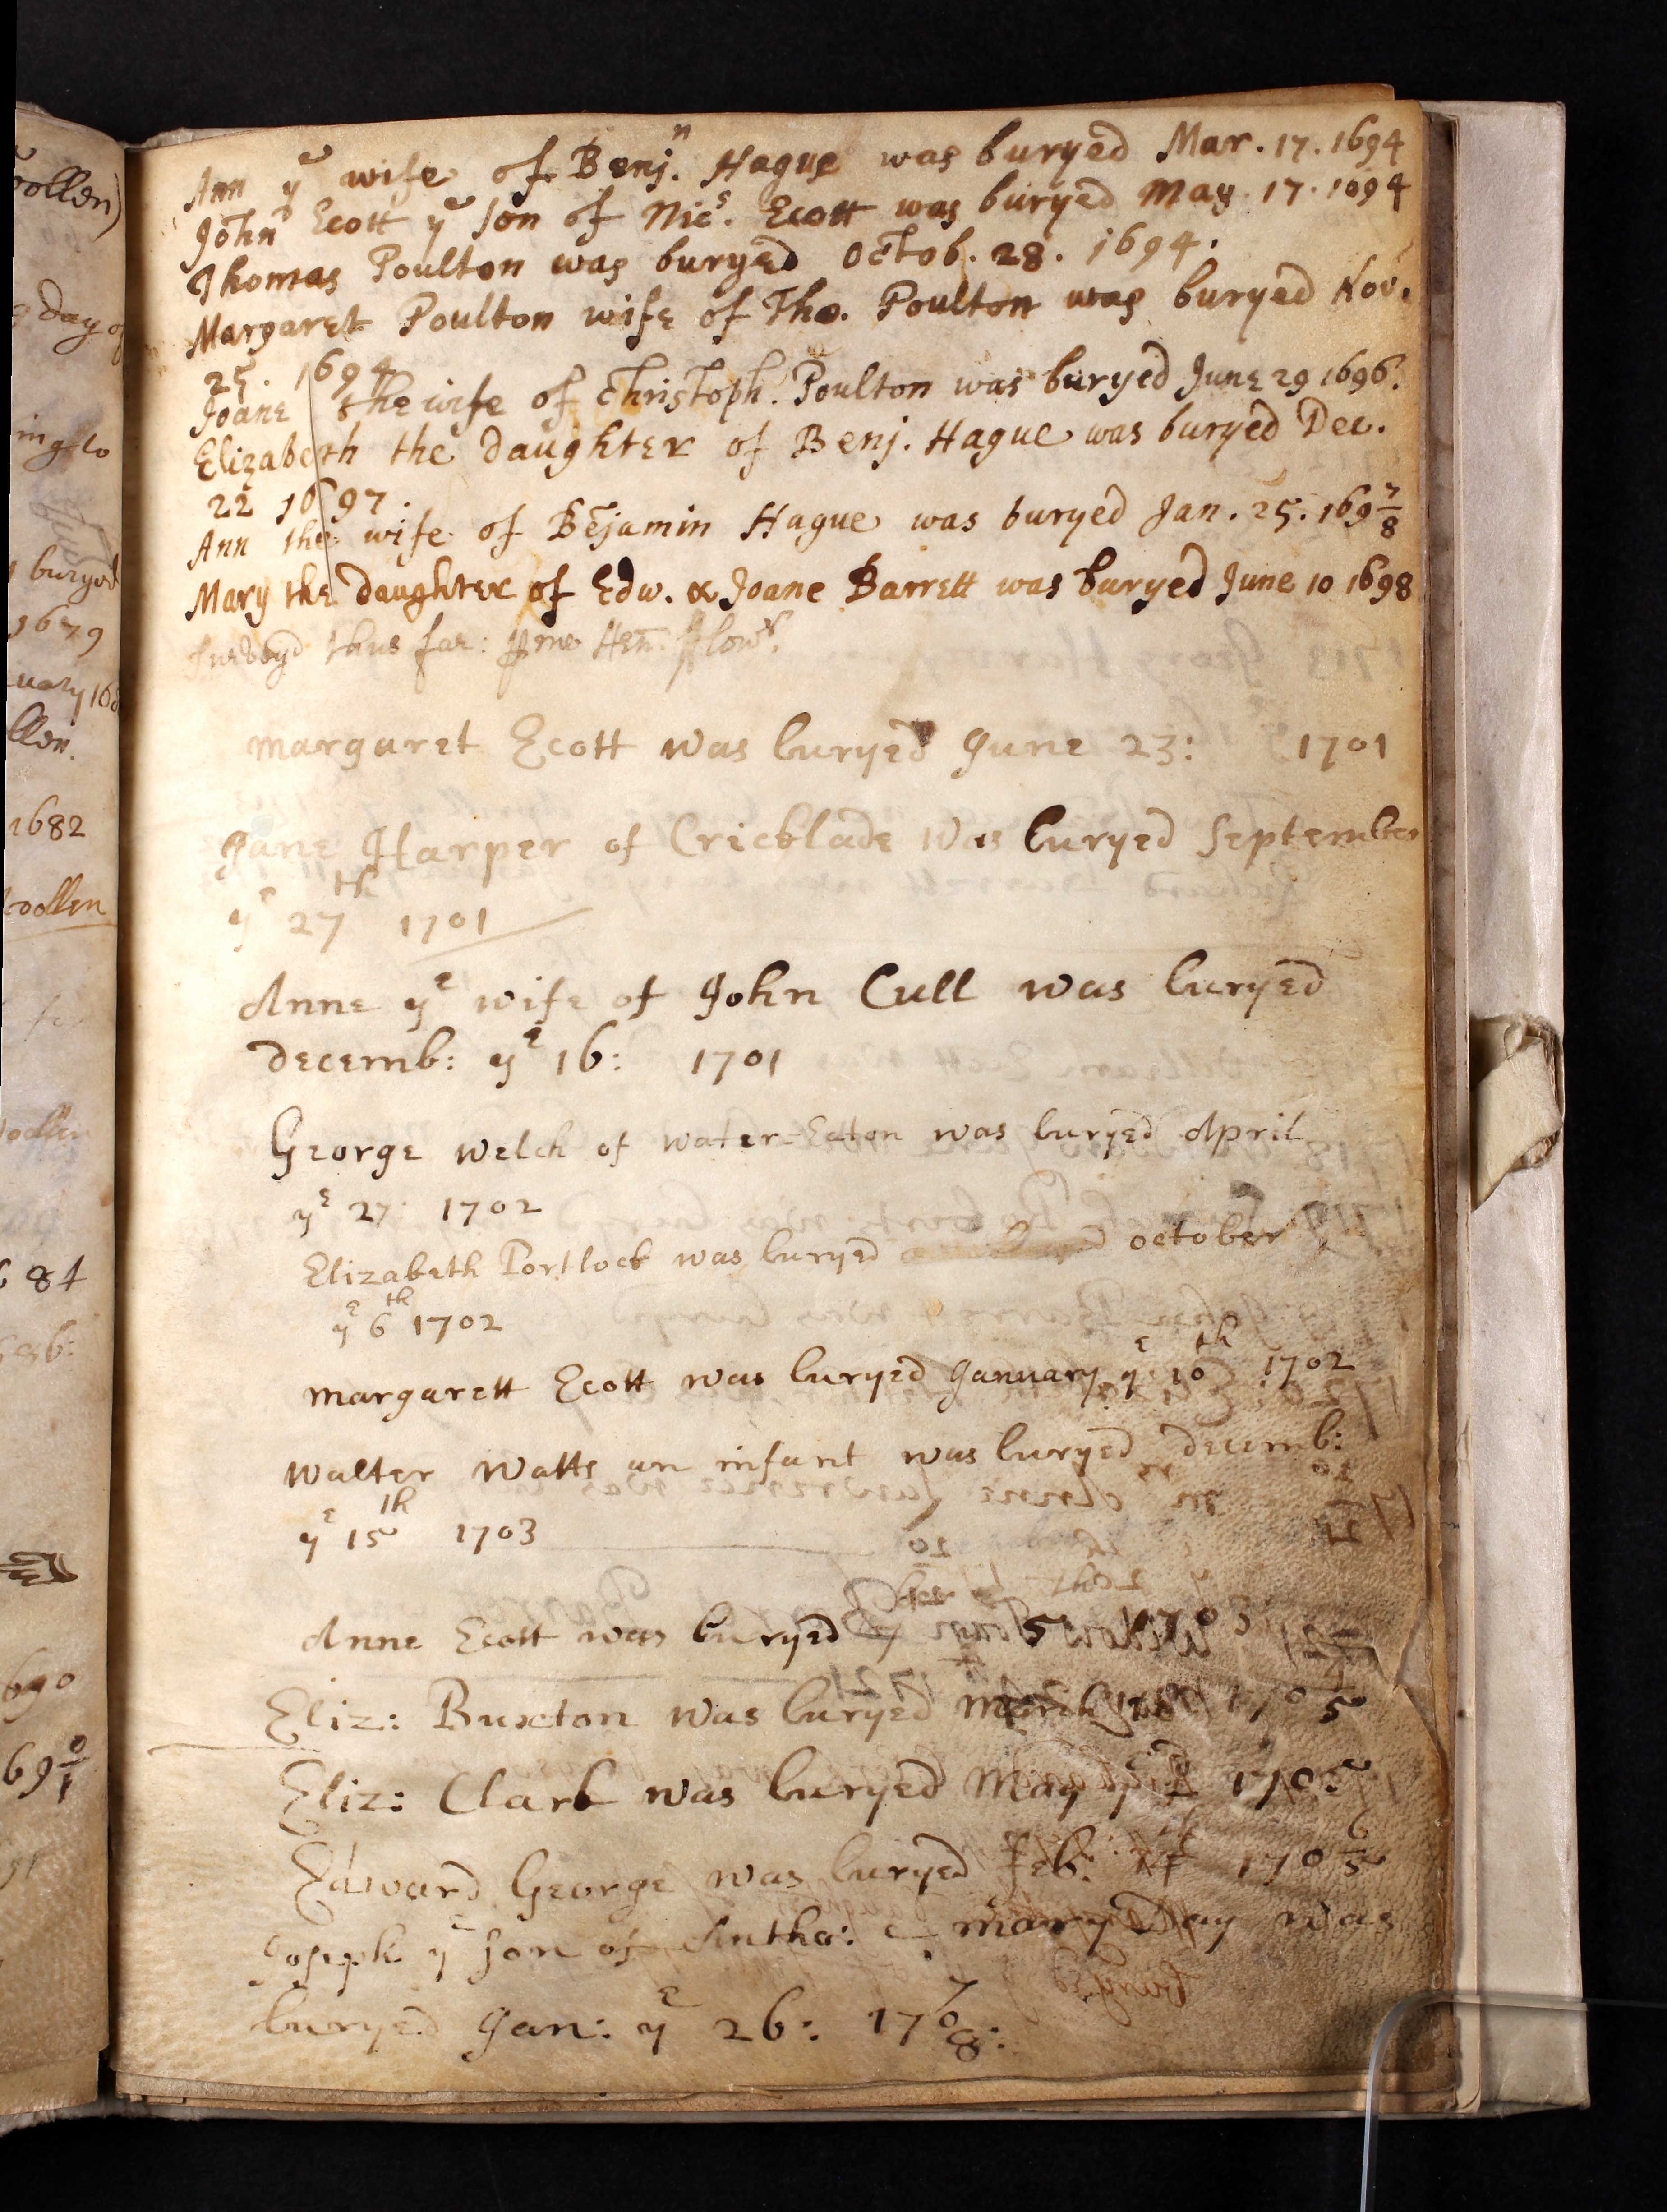 Ann yᵉ wife of Benjⁿ. Hague was buryed Mar. 17. 1694
John Ecott yᵉ son of Nicˢ. Ecott was buryed May. 17. 1694
Thomas Poulton was buryed Octob. 28. 1694.
Margaret Poulton wife of Tho. Poulton was buryed Nov.
25. 1694
Joane the wife of Christoph. Poulton was buryed June 29 1696.
Elizabeth the daughter of Benj. Hague was buryed Dec.
22 1697.
Ann the wife of Bējamin Hague was buryed Jan. 25. 169 7/8
Mary the daughter of Edw. & Joane Barrett was buryed June 10 1698
thus far: me Hen.
margaret Ecott was buryed June 23: 1701
Jane Harper of Cricklade was buryed September
yᵉ 27ᵗʰ 1701
Anne yᵉ wife of John Cull was buryed
decemb: yᵉ 16: 1701
George Welch of Water-Eaton was buryed April
yᵉ 27 1702
Elizabeth Portlock was buryed october
yᵉ 6ᵗʰ 1702
margarett Ecott was buryed January yᵉ 10ᵗʰ 1702
Walter Watts an infant was buryed decemb:
yᵉ 15ᵗʰ 1703
Anne Ecott was buryed
Eliz: Buxton was buryed March 1705
Eliz: Clark was buryed May yᵉ 1705
Edward George was buryed Feb: 170 5/6
Joseph yᵉ son of Antho: & mary Day was
buryed Jan: yᵉ 26: 170 7/8:
oollen)
day of
ing to
buryed
1679
uary 168
llen.
1682
oollen
684
690
69 0/1